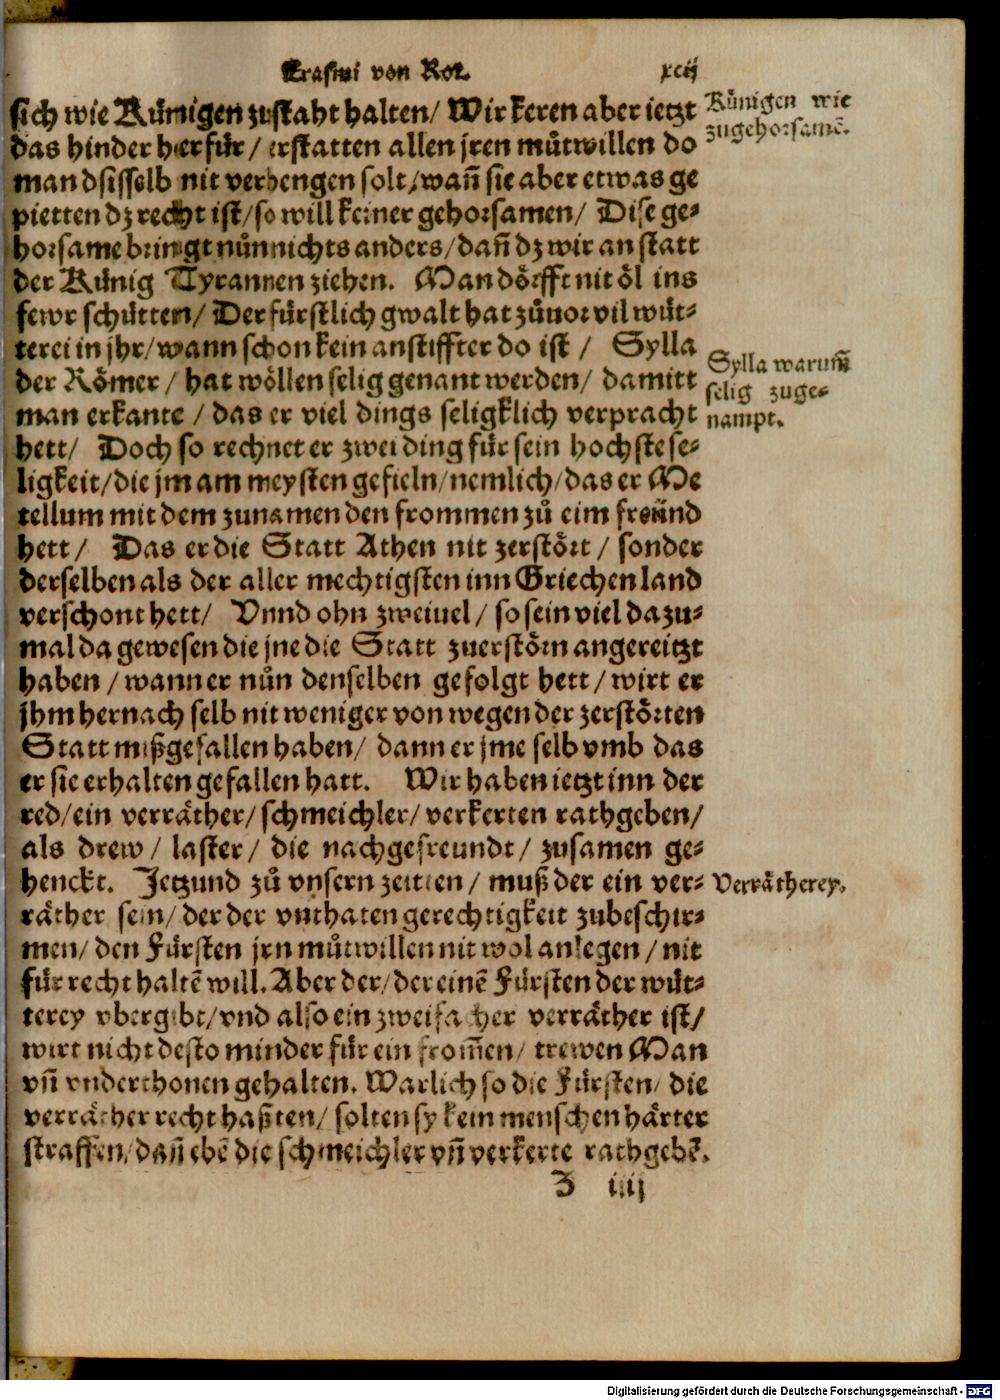 Erasmi von Rot. xcij
sich wie Künigen zustaht halten/ Wir keren aber ietzt
das hinder herfür/ erstatten allen jren můtwillen do
man dsisselb nit verhengen solt/ wañ sie aber etwas ge
pietten dz recht ist/ so will keiner gehorsamen/ Dise ge-
horsame bringt nůn nichts anders/ dañ dz wir an statt
der Künig Tyrannen ziehen. Man dörfft nit öl ins
fewr schütten/ Der fürstlich gwalt hat zůuor vil wüt-
terei in jhr/ wann schon kein anstiffter do ist / Sylla
der Römer / hat wöllen selig genant werden/ damitt
man erkante / das er viel dings seligklich verpracht
hett/ Doch so rechnet er zwei ding für sein hochste se-
ligkeit/ die jm am meysten gefieln/ nemlich/ das er Me
tellum mit dem zunamen den frommen zů eim freünd
hett/ Das er die Statt Athen nit zerstört / sonder
derselben als der aller mechtigsten inn Griechenland
verschont hett/ Vnnd ohn zweiuel / so sein viel dazu-
mal da gewesen die jne die Statt zuerstörn angereitzt
haben / wann er nůn denselben gefolgt hett / wirt er
jhm hernach selb nit weniger von wegen der zerstörten
Statt mißgefallen haben/ dann er jme selb vmb das
er sie erhalten gefallen hatt. Wir haben ietzt inn der
red/ ein verräther/ schmeichler/ verkerten rathgeben/
als drew / laster / die nachgefreundt / zusamen ge-
henckt. Jetzund zů vnsern zeitten / muß der ein ver-
räther sein/ der der vnthaten gerechtigkeit zubeschir-
men/ den Fürsten jrn můtwillen nit wol anlegen / nit
für recht haltē will. Aber der/ der einē Fürsten der wüt-
terey vbergibt/ vnd also ein zweifacher verräther ist/
wirt nicht desto minder für ein from̄en/ trewen Man
vñ vnderthonen gehalten. Warlich so die Fürsten/ die
verräther recht haßten/ solten sy kein menschen härter
straffen/ dañ ebē die schmeichler vñ verkerte rathgebē.
Z iiij
Künigen wie
zugehorsamē.
Sylla warum̄
selig zuge-
nampt.
Verrätherey.
Digitalisierung gefördert durch die Deutsche Forschungsgemeinschaft - DFG